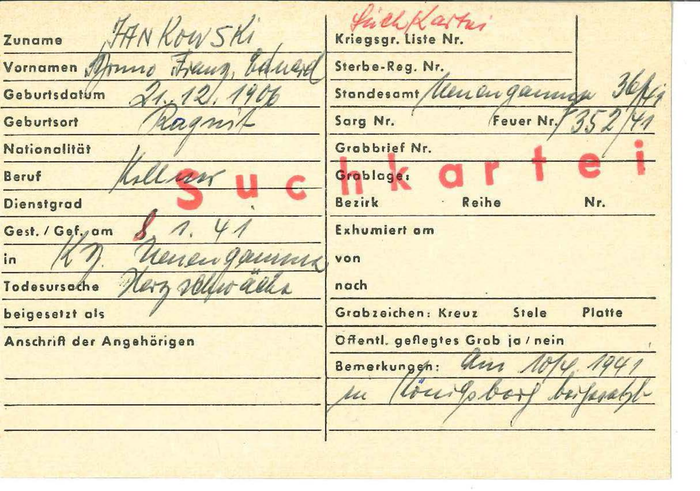 Zuname JANKOWSKI
Vornamen Bruno Franz, Eduard
Geburtsdatum 21.12.1906
Geburtsort Ragnit
Nationalität
Beruf Kellner
Dienstgrad
Gest./Gef. am 8.1.41
in Kz. Neuengamme
Todesursache Herzschwäche
beigesetzt als
Anschrift der Angehörigen
Suchkartei
Kriegsgr. Liste Nr.
Sterbe-Reg. Nr.
Standesamt Neuengamme
Sarg Nr. Feuer Nr. 352/41
Grabbrief Nr.
Grablage:
Bezirk Reihe Nr.
Exhumiert am
von
nach
Grabzeichen: Kreuz Stele Platte
Öffentl. geflegtes Grob ja/nein
Bemerkungen: Am 1941
in Königsberg beigesetzt
Suchkartei